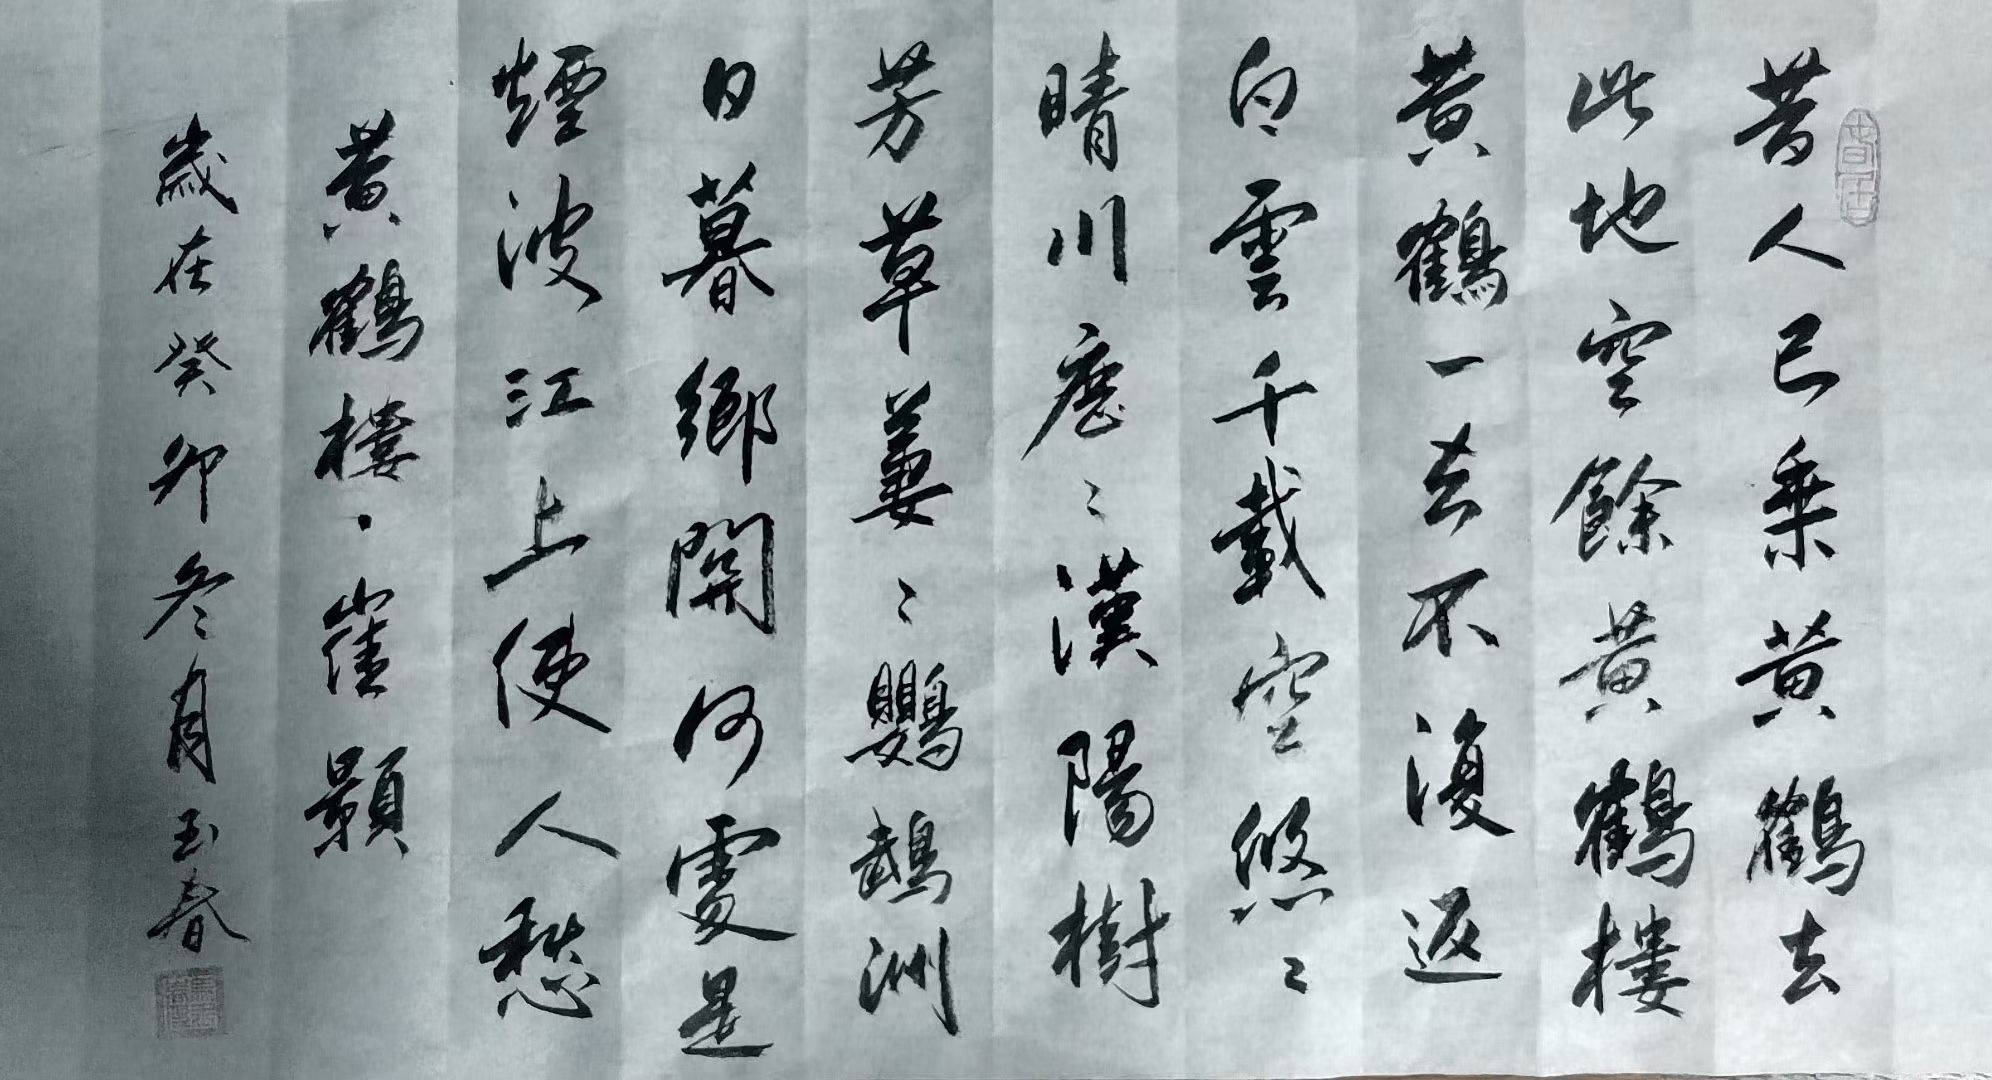 昔人已乘黄鶴去
此地空餘黄鶴樓
黄鶴一去不復返
白雲千載空悠〻
晴川歷〻漢陽樹
芳草萋〻鸚鵡洲
日暮鄉關何處是
煙波江上使人愁
黄鶴樓·崔顥
歲在癸卯冬月玉春